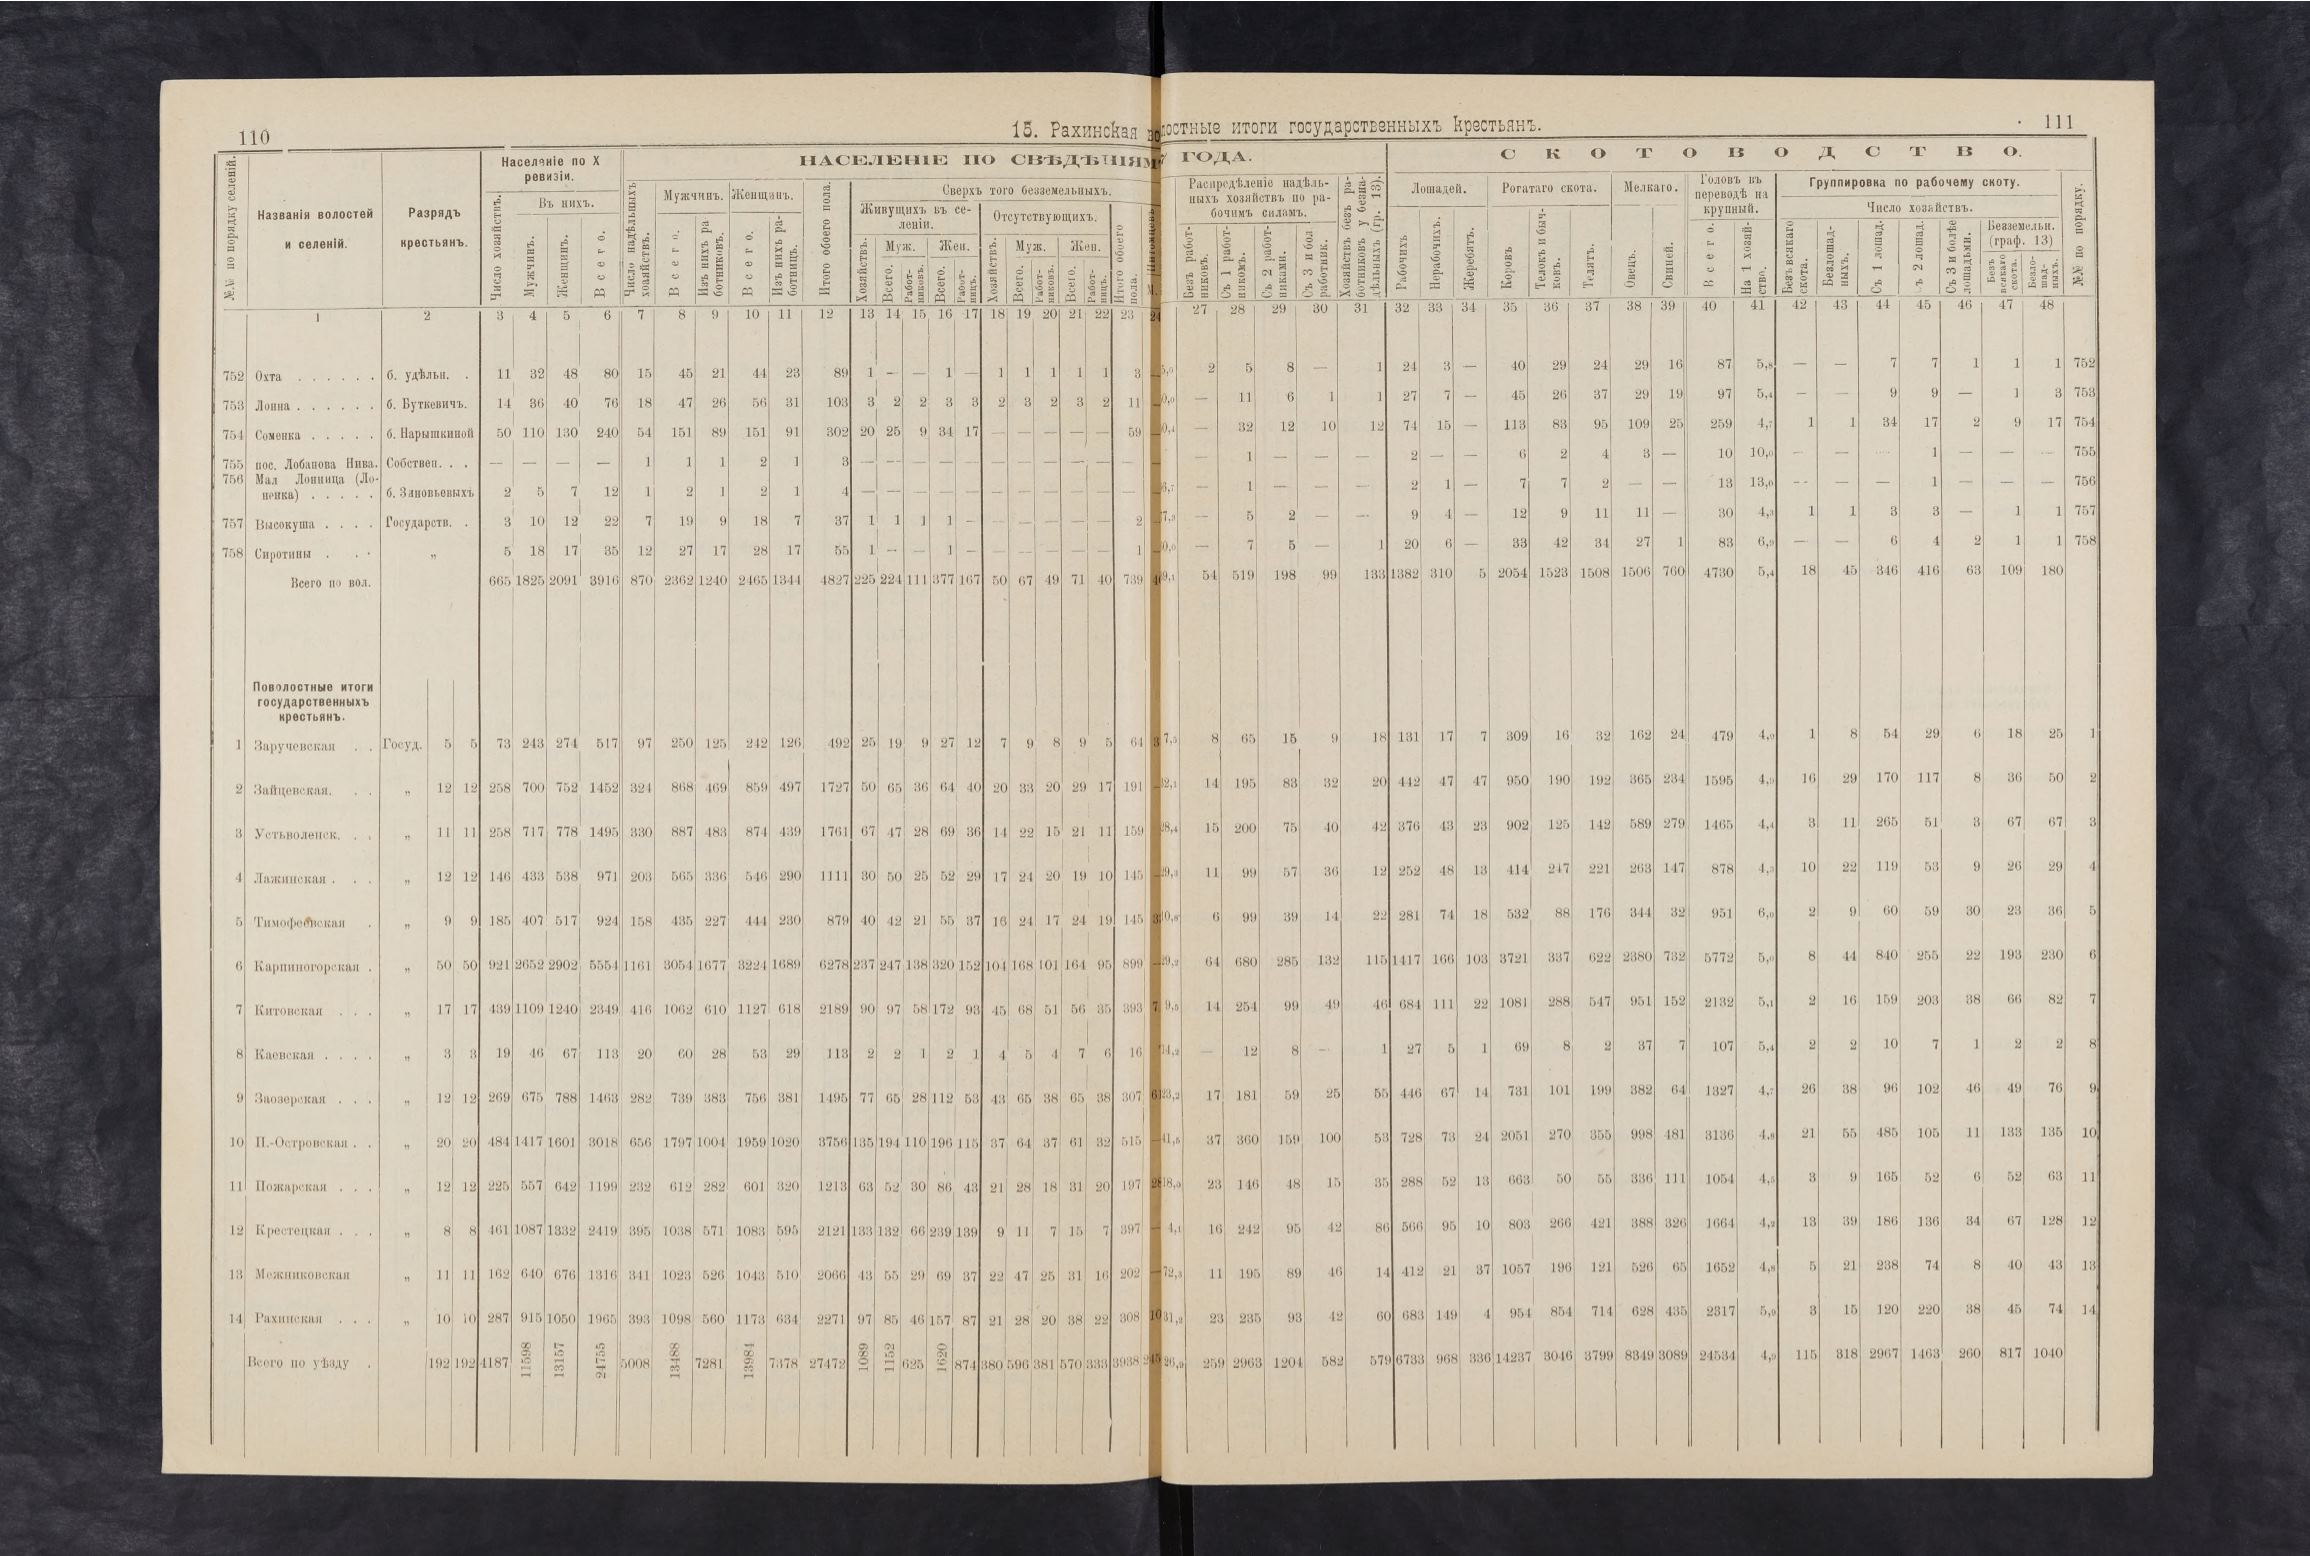 110
15. Рахинская во
лостные итоги государственныхъ крестьянъ.
111
№№ по порядку селеній.
Названія волостей и селеній.
Разрядъ крестьянъ.
Населеніе по X ревизіи.
Число хозяйствъ.
Въ нихъ.
Мужчинъ.
Женщинъ.
Всего.
НАСЕЛЕНІЕ ПО СВѢДѢНІЯМ
ГОДА.
Число надѣльныхъ хозяйствъ.
Мужчинъ.
Всего.
Изъ нихъ работниковъ.
Женщинъ.
Всего.
Изъ нихъ работницъ.
Итого обоего пола.
Сверхъ того безземельныхъ.
Живущихъ въ селеніи.
Хозяйствъ.
Муж.
Всего.
Работниковъ.
Жен.
Всего.
Работницъ.
Отсутствующихъ.
Хозяйствъ.
Муж.
Всего.
Работниковъ.
Жен.
Всего.
Работницъ.
Итого обоего пола.
Распредѣленіе надѣльныхъ хозяйствъ по рабочимъ силамъ.
Безъ работниковъ.
Съ 1 работникомъ.
Съ 2 работниками.
Съ 3 и бол работник.
Хозяйствъ безъ работниковъ у безнадѣльныхъ (гр. 13).
СКОТОВОДСТВО.
Лошадей.
Рабочихъ
Нерабочихъ.
Жеребятъ.
Рогатаго скота.
Коровъ
Телокъ и бычковъ.
Телятъ.
Мелкаго.
Овецъ.
Свиней.
Головъ въ переводѣ на крупный.
Всего.
На 1 хозяйство.
Группировка по рабочему скоту.
Число хозяйствъ.
Безъ всякаго скота.
Безлошадныхъ.
Съ 1 лошад.
ъ 2 лошад.
Съ 3 и болѣе лошадьми.
Безземельн. (граф. 13)
Безъ всякаго скота.
Безлошадныхъ.
№№ по порядку.
1 2 3 4 5 6 7 8 9 10 11 12 13 14 15 16 17 18 19 20 21 22 23 24 27 28 29 30 31 32 33 34 35 36 37 38 39 40 41 42 43 44 45 46 47 48
752 Охта . . . . . . б. удѣльн. . 11 32 48 80 15 45 21 44 23 89 1 — — 1 — 1 1 1 1 1 3 — 5,0 2 5 8 — 1 24 3 — 40 29 24 29 16 87 5,8 — — 7 7 1 1 1 752
753 Лонна . . . . . . б. Буткевичъ. 14 36 40 76 18 47 26 56 31 103 3 2 2 3 3 2 3 2 3 2 11 — 0,0 — 11 6 1 1 27 7 — 45 26 37 29 19 97 5,4 — — 9 9 — 1 3 753
754 Соменка . . . . . б. Нарышкиной 50 110 130 240 54 151 89 151 91 302 20 25 9 34 17 — — — — — 59 — 0,4 — 32 12 10 12 74 15 — 113 83 95 109 25 259 4,7 1 1 34 17 2 9 17 754
755 пос. Лобанова Нива. Собствен. . . — — — — 1 1 1 2 1 3 — — — — — — — — — — — — — 1 — — — 2 — — 6 2 4 3 — 10 10,0 — — — 1 — — — 755
756 Мал Лонница (Лоненка) . . . . . б. Зиновьевыхъ 2 5 7 12 1 2 1 2 1 4 — — — — — — — — — — — — 6,7 — 1 — — — 2 1 — 7 7 2 — — 13 13,0 — — — 1 — — — 756
757 Высокуша . . . . Государств. . 3 10 12 22 7 19 9 18 7 37 1 1 1 1 — — — — — — 2 — 7,3 — 5 2 — — 9 4 — 12 9 11 11 — 30 4,3 1 1 3 3 — 1 1 757
758 Сиротины . . . „ 5 18 17 35 12 27 17 28 17 55 1 — — 1 — — — — — — 1 — 0,0 — 7 5 — 1 20 6 — 33 42 34 27 1 83 6,9 — — 6 4 2 1 1 758
Всего по вол. 665 1825 2091 3916 870 2362 1240 2465 1344 4827 225 224 111 377 167 50 67 49 71 40 739 9,1 54 519 198 99 133 1382 310 5 2054 1523 1508 1506 760 4730 5,4 18 45 346 416 63 109 180
Поволостные итоги
государственныхъ
крестьянъ.
1 Заручевская . . Госуд. 5 5 73 243 274 517 97 250 125 242 126 492 25 19 9 27 12 7 9 8 9 5 64 3 7,5 8 65 15 9 18 131 17 7 309 16 32 162 24 479 4,9 1 8 54 29 6 18 25 1
2 Зайцевская. . . „ 12 12 258 700 752 1452 324 868 469 859 497 1727 50 65 36 64 40 20 33 20 29 17 191 — 12,1 14 195 83 32 20 442 47 47 950 190 192 365 234 1595 4,9 16 29 170 117 8 36 50 2
3 Устьволенск. . . „ 11 11 258 717 778 1495 330 887 483 874 439 1761 67 47 28 69 36 14 22 15 21 11 159 28,4 15 200 75 40 42 376 43 23 902 125 142 589 279 1465 4,4 3 11 265 51 3 67 67 3
4 Лажинская . . . „ 12 12 146 433 538 971 203 565 336 546 290 1111 30 50 25 52 29 17 24 20 19 10 145 29,3 11 99 57 36 12 252 48 13 414 247 221 263 147 878 4,3 10 22 119 53 9 26 29 4
5 Тимофеевская . „ 9 9 185 407 517 924 158 435 227 444 230 879 40 42 21 55 37 16 24 17 24 19 145 10,8 6 99 39 14 22 281 74 18 532 88 176 344 32 951 6,0 2 9 60 59 30 23 36 5
6 Карпиногорская . „ 50 50 921 2652 2902 5554 1161 3054 1677 3224 1689 6278 237 247 138 320 152 104 168 101 164 95 899 — 29,2 64 680 285 132 115 1417 166 103 3721 337 622 2380 732 5772 5,0 8 44 840 255 22 193 230 6
7 Китовская . . . „ 17 17 439 1109 1240 2349 416 1062 610 1127 618 2189 90 97 58 172 93 45 68 51 56 35 393 7 9,5 14 254 99 49 46 684 111 22 1081 288 547 951 152 2132 5,1 2 16 159 203 38 66 82 7
8 Каевская . . . . „ 3 3 19 46 67 113 20 60 28 53 29 113 2 2 1 2 1 4 5 4 7 6 16 14,2 — 12 8 — 1 27 5 1 69 8 2 37 7 107 5,4 2 2 10 7 1 2 2 8
9 Заозерская . . . „ 12 12 269 675 788 1463 282 739 383 756 381 1495 77 65 28 112 53 43 65 38 65 38 307 6 23,2 17 181 59 25 55 446 67 14 731 101 199 382 64 1327 4,7 26 38 96 102 46 49 76 9
10 П.-Островская . . „ 20 20 484 1417 1601 3018 656 1797 1004 1959 1020 3756 135 194 110 196 115 37 64 37 61 32 515 — 41,5 37 360 159 100 53 728 73 24 2051 270 355 998 481 3136 4,8 21 55 485 105 11 133 135 10
11 Пожарская . . . „ 12 12 225 557 642 1199 232 612 282 601 320 1213 63 52 30 86 43 21 28 18 31 20 197 18,0 23 146 48 15 35 288 52 13 663 50 55 336 111 1054 4,5 3 9 165 52 6 52 63 11
12 Крестецкая . . . „ 8 8 461 1087 1332 2419 395 1038 571 1083 595 2121 133 132 66 239 139 9 11 7 15 7 397 — 4,1 16 242 95 42 86 566 95 10 803 266 421 388 326 1664 4,2 13 39 186 136 34 67 128 12
13 Межниковская „ 11 11 162 640 676 1316 341 1023 526 1043 510 2066 43 55 29 69 37 22 47 25 31 16 202 — 72,3 11 195 89 46 14 412 21 37 1057 196 121 526 65 1652 4,8 5 21 238 74 8 40 43 13
14 Рахинская . . . „ 10 10 287 915 1050 1965 393 1098 560 1173 634 2271 97 85 46 157 87 21 28 20 38 22 308 10 31,2 23 235 93 42 60 683 149 4 954 854 714 628 435 2317 5,9 3 15 120 220 38 45 74 14
Всего по уѣзду . 192 192 4187 11598 13157 24755 5008 13488 7281 13984 7378 27472 1089 1152 625 1620 874 380 596 381 570 333 3938 26,9 259 2963 1204 582 579 6733 968 336 14237 3046 3799 8349 3089 24534 4,9 115 318 2967 1463 260 817 1040